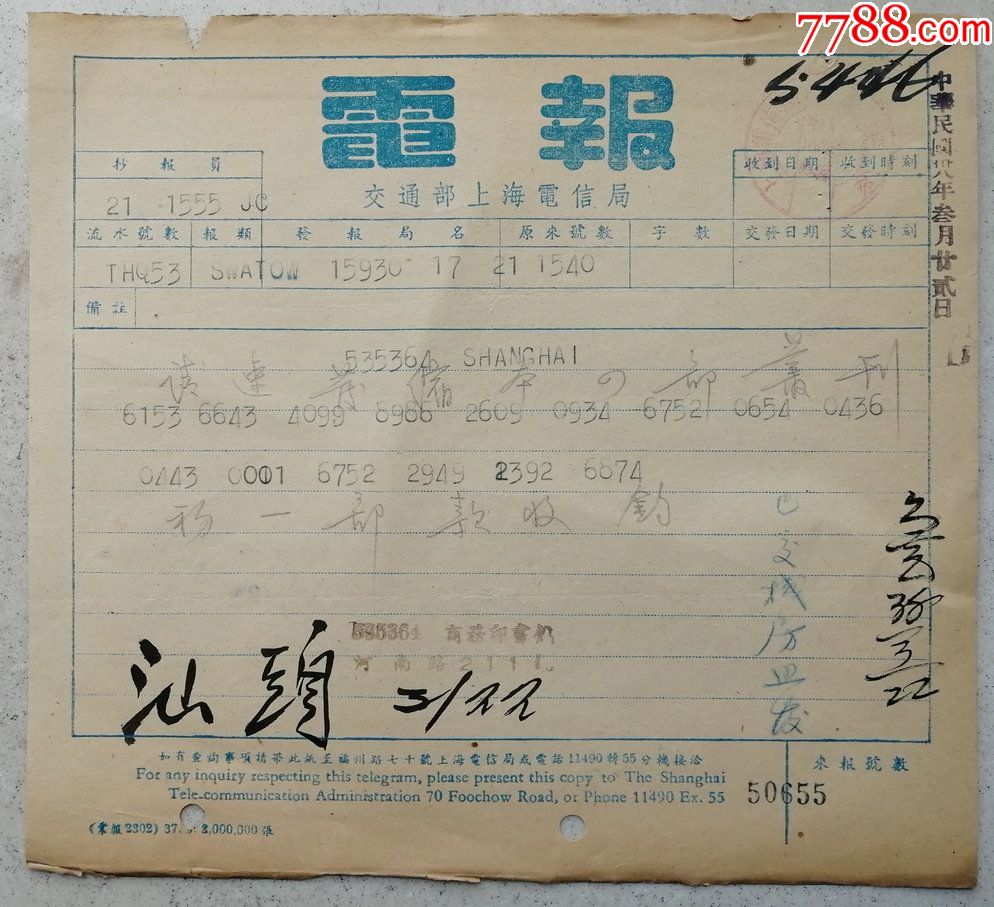 7788.com
電報
交通部上海電信局
抄報員
收到日期 收到時刻
21 1555 JC
流水號數 報類 發報局名 原來號數 字數 交發日期 交發時刻
THQ53 SWATOW 15930 17 21 1540
備註
535364 SHANGHAI
6153 6643 4099 8986 2609 0934 6752 0654 0436
0443 0001 6752 2949 2392 6874
一部款收
535364 商務印書館
河南路211
汕頭 3/22
已交
如有查詢事項携帶此紙至福州路七十號上海電信局或電話11490轉55分機接洽
For any inquiry respecting this telegram, please present this copy to The Shanghai
Tele-communication Administration 70 Foochow Road, or Phone 11490 Ex. 55
來報號數
50655
(業報2302) 37. 2,000,000張
中華民國卅八年叁月廿貳日